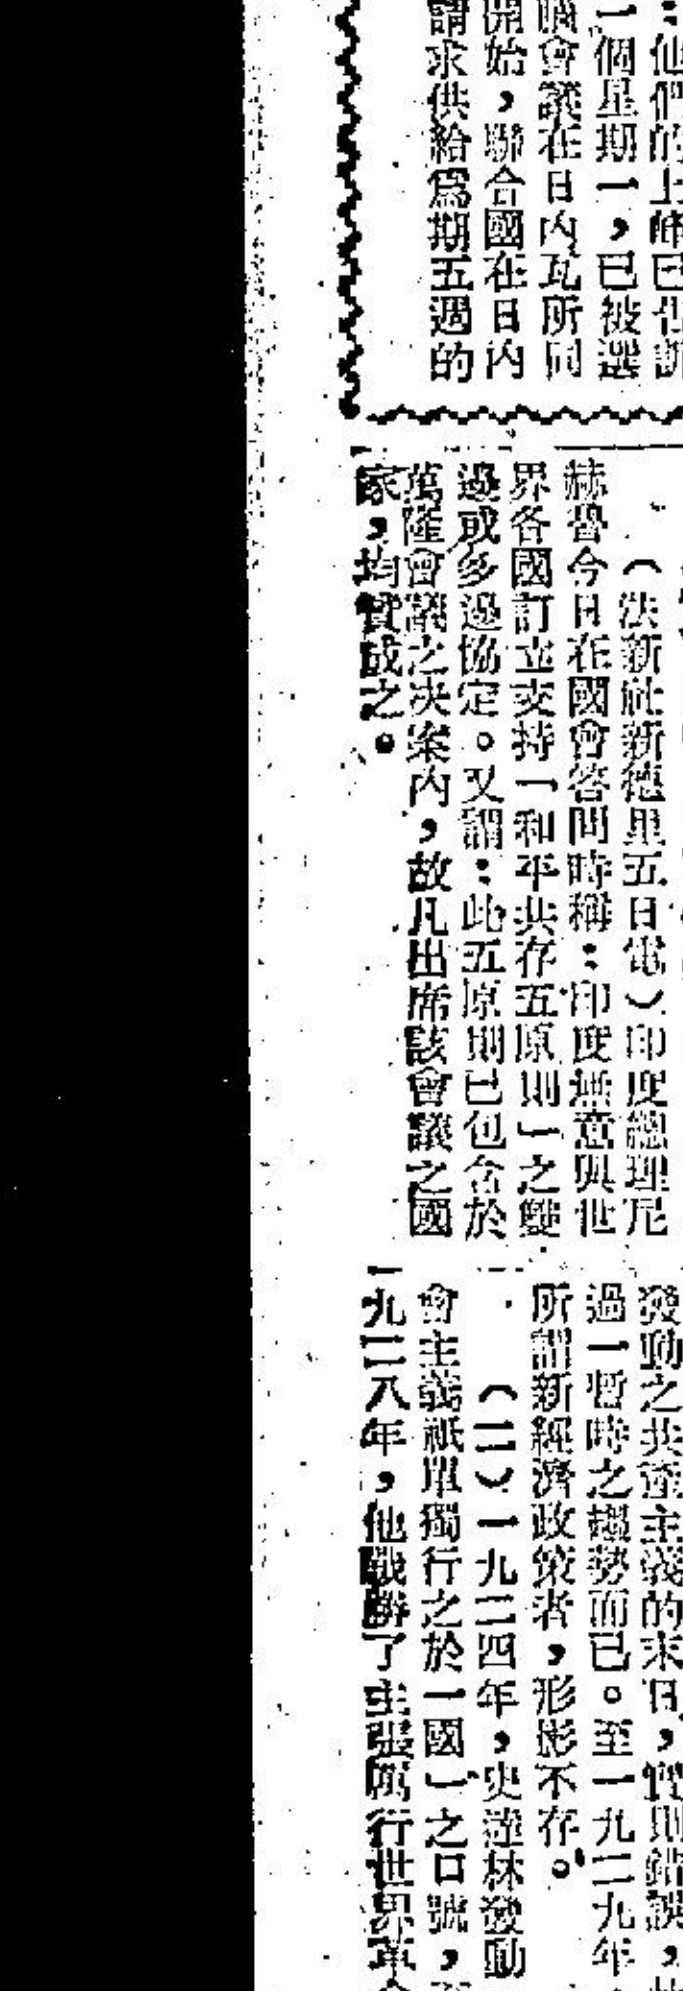 ：他們的上峰已
一個星期一，已被選
會議在日內瓦所同
開始，聯合國在日內
請求供給為期五週的
（法新社新德里五日電）印度總理尼
赫魯今日在國會答問時稱：印度無意與世
界各國訂立支持「和平共存五原則」之雙
邊或多邊協定。又謂：此五原則已包含於
萬隆會議之决案內，故凡出席該會議之國
家，均贊成之。
發動之共產主義的末日，實則錯誤，
過一暫時之趨勢而已。至一九二九年，
所謂新經濟政策者，形影不存。
（二）一九二四年，史達林發動「
會主義祇單獨行之於一國」之口號，
九二八年，他戰勝了主張厲行世界革命